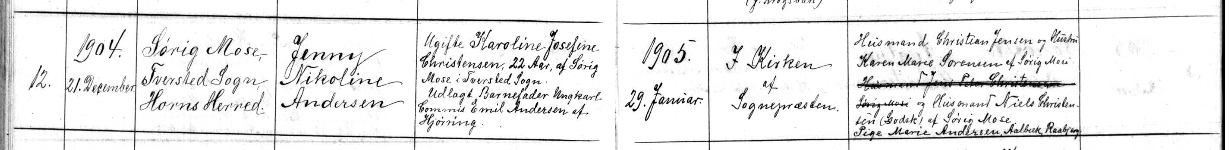 12.
1904.
21. December.
Sørig Mose,
Tversted Sogn
Horns Herred.
Jenny
Nikoline
Andersen
Ugifte Karoline Josefine
Christensen, 22 Aar, af Sørig
Mose i Tversted Sogn.
Udlagt Barnefader Ungkarl
Commis Emil Andersen af
Hjørring.
1905.
29. Januar.
I Kirken
af
Sognepræsten.
Husmand Christian Jensen og Hustru
Karen Marie Sørensen af Sørig Mose
Husmand Jens Peter Christensen
Sørig Mose og Husmand Niels Christen-
sen (Godsk) af Sørig Mose
Pige Marie Andersen, Aalbæk, Raabjerg